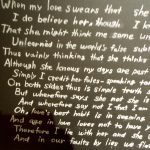 When my love swears that she
I do believe her, though I
That she might think me some
Unlearned in the world's false
Thus vainly thinking that she thinks
Although she knows my days are past
Simply I credit her false-speaking
On both sides thus is simple truth
But wherefore says she not she is
And wherefore say not I that I am
Oh, love's best habit is in seeming
And age in love loves not to have
Therefore I lie with her and she
And in our faults by lies we